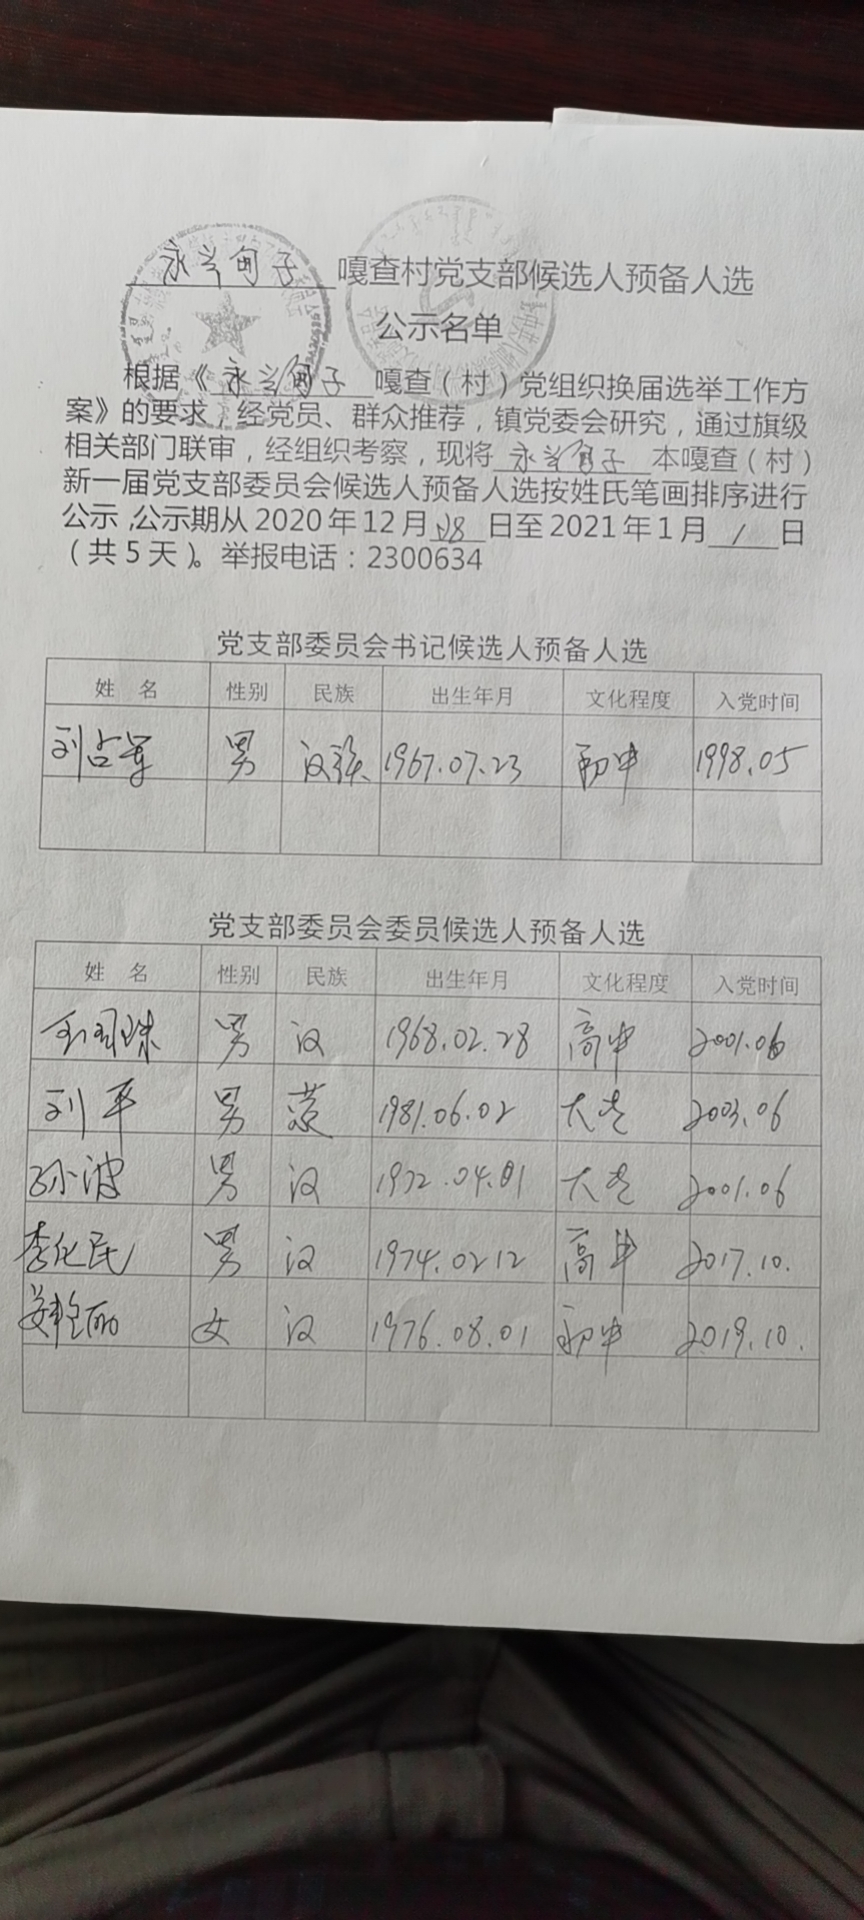 永兴甸子 嘎查村党支部候选人预备人选
公示名单
根据《永兴甸子 嘎查（村）党组织换届选举工作方
案》的要求，经党员、群众推荐，镇党委会研究，通过旗级
相关部门联审，经组织考察，现将 永兴甸子 本嘎查（村）
新一届党支部委员会候选人预备人选按姓氏笔画排序进行
公示，公示期从2020年12月28日至2021年1月1日
（共5天）。举报电话：2300634
党支部委员会书记候选人预备人选
姓 名 性别 民族 出生年月 文化程度 入党时间
刘占军 男 汉族 1967.07.23 初中 1998.05
党支部委员会委员候选人预备人选
姓 名 性别 民族 出生年月 文化程度 入党时间
男 汉 1968.02.28 高中 2001.06
刘平 男 蒙 1981.06.02 大专 2003.06
孙波 男 汉 1972.04.01 大专 2001.06
李化民 男 汉 1974.02.12 高中 2017.10.
姜艳丽 女 汉 1976.08.01 初中 2019.10.